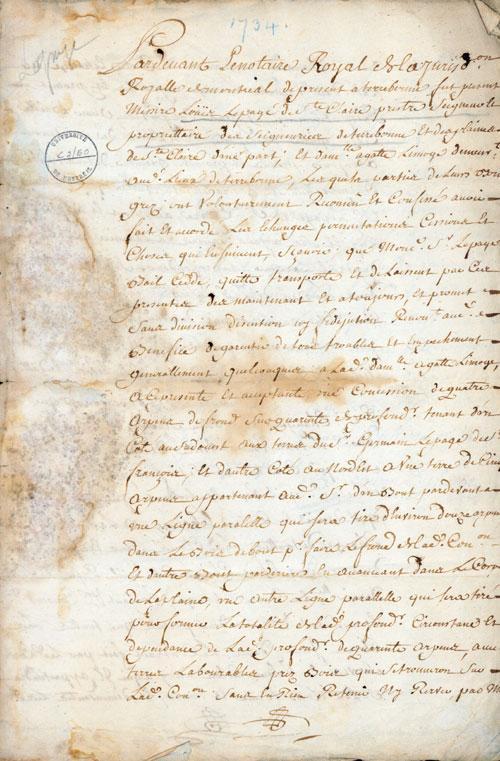 1734.
Pardevant Le notaire Royal de la jurisd.on
Royalle de montreal de present a terrebonne fut present
Messire Loüis Lepage de S.te Claire prestre Seigneur et
proprietaire des Seigneuries de terrebonne et des plaines
de S.te Claire d'une part; Et dam.lle agatte Limoge demeur.t
aud. Lieux de terrebonne, Les quels parties de Leurs bon
grez; ont Volontairement Reconnu Et Confessé avoir
fait Et accordé Les Echanges permutations Cessions Et
Choses qui Ensuivent Scavoir: que Mond. S.r Lepage
Bail Cedde, quitte transporte Et delaisse par Ces
presentes des maintenant Et a toujours, Et promet
Sans division discution ny fidejution
Benefice de garentir de tous troubles Et Empechement
generallement quelconques a Lad.e dam.lle agatte Limoge,
a Ce presente Et acceptante une Concession de quatre
arpens de front Sur quarante de profond.r tenant d'un
Coté au Sudouest aux terres du S.r Germain Lepage de S.t
françois; Et d'autre Coté au Nordest a Une terre de Cinq
arpens appartenant aud. S.r d'un Bout pardevant a
une Ligne paralelle qui sera tiré d'Environ douze arpens
dans Le Bois debout p.r faire Le front de lad.e Con.on
Et d'autre Bout par deriere En avancant dans Le Cors
de La plaine, une autre Ligne paralelle qui Sera tiré
pour former La totalité de lad.e profond.r Circonstance Et
dependance de Lad.e profond.r de quarante arpens avec
terres Labourables prez Bois qui Se trouveron Sur
Lad.e Con.on Sans En Rien Retenir Ny Reservé par M
UNIVERSITÉ
DE MONTRÉAL